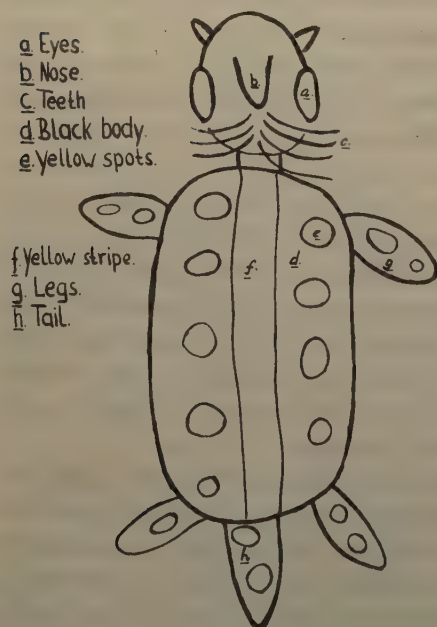 a Eyes.
b Nose.
c Teeth
d Black body.
e Yellow spots.
f Yellow stripe.
g Legs.
h Tail.
b.
a.
c.
e
d.
f.
g
h